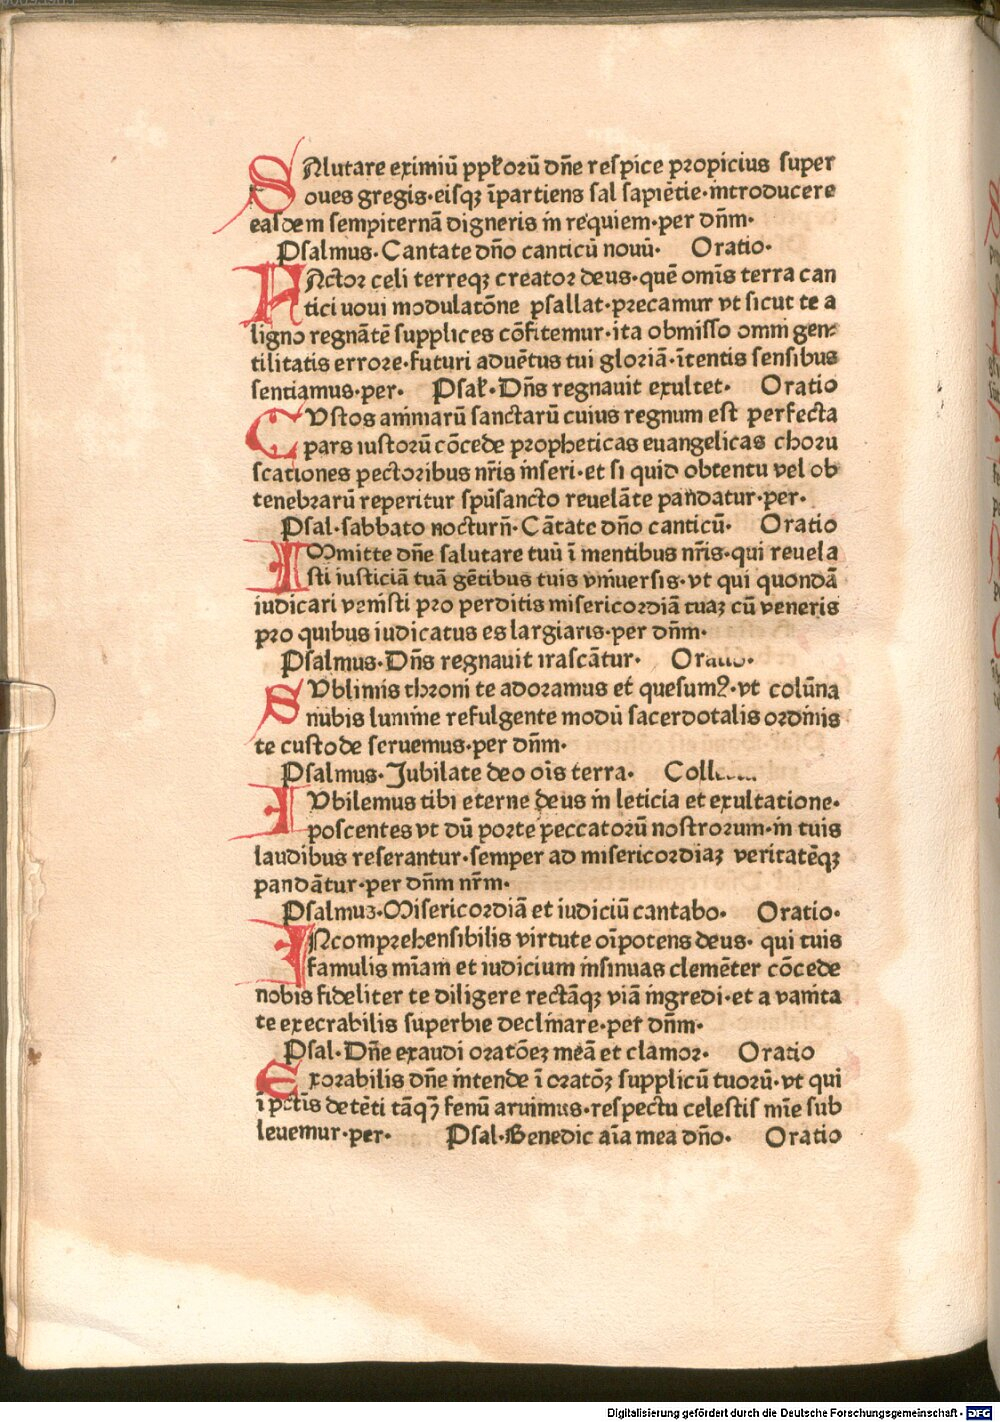 SAlutare eximiū ppłorū dñe respice propicius super
oues gregis·eisqꝫ īpartiens sal sapiētie·introducere
easdem sempiternā digneris in requiem·per dñm·
Psalmus·Cantate dño canticū nouū· Oratio·
Actor celi terreqꝫ creator deus·quē omīs terra can
tici uoui modulatōne psallat·precamur vt sicut te a
ligno regnātē supplices cōfitemur·ita obmisso omni gen⸗
tilitatis errore·futuri aduētus tui gloriā·ītentis sensibus
sentiamus·per· Psał·Dñs regnauit exultet· Oratio
CVstos animarū sanctarū cuius regnum est perfecta
pars iustorū cōcede propheticas euangelicas choru
scationes pectoribus nr̄is inseri·et si quid obtentu vel ob
tenebrarū reperitur spūsancto reuelāte pandatur·per·
Psal·sabbato nocturn̄·Cātate dño canticū· Oratio
IMmitte dñe salutare tuū ī mentibus nr̄is·qui reuela
sti iusticiā tuā gētibus tuis vniuersis·vt qui quondā
iudicari venisti pro perditis misericordiā tuaꝫ cū veneris
pro quibus iudicatus es largiaris·per dñm·
Psalmus·Dñs regnauit irascātur· Oratio·
SVblimis throni te adoramus et quesumꝰ·vt colūna
nubis lumine refulgente modū sacerdotalis ordinis
te custode seruemus·per dñm·
Psalmus·Jubilate deo oīs terra·
IVbilemus tibi eterne deus in leticia et exultatione·
poscentes vt dū porte peccatorū nostrorum·in tuis
laudibus reserantur·semper ad misericordiaꝫ veritatēqꝫ
pandātur·per dñm nr̄m·
Psalmuꝫ·Misericordiā et iudiciū cantabo· Oratio·
INcomprehensibilis virtute oīpotens deus· qui tuis
famulis mīam et iudicium insinuas clemēter cōcede
nobis fideliter te diligere rectāqꝫ viā ingredi·et a vanita
te execrabilis superbie declinare·per dñm·
Psal·Dñe exaudi oratōeꝫ meā et clamor· Oratio
Exorabilis dñe intende ī oratōꝫ supplicū tuorū·vt qui
ī pctīs detēti tāqꝫ fenū aruimus·respectu celestis mīe sub
leuemur·per· Psal·Benedic aīa mea dño· Oratio
Digitalisierung gefördert durch die Deutsche Forschungsgemeinschaft - DFG